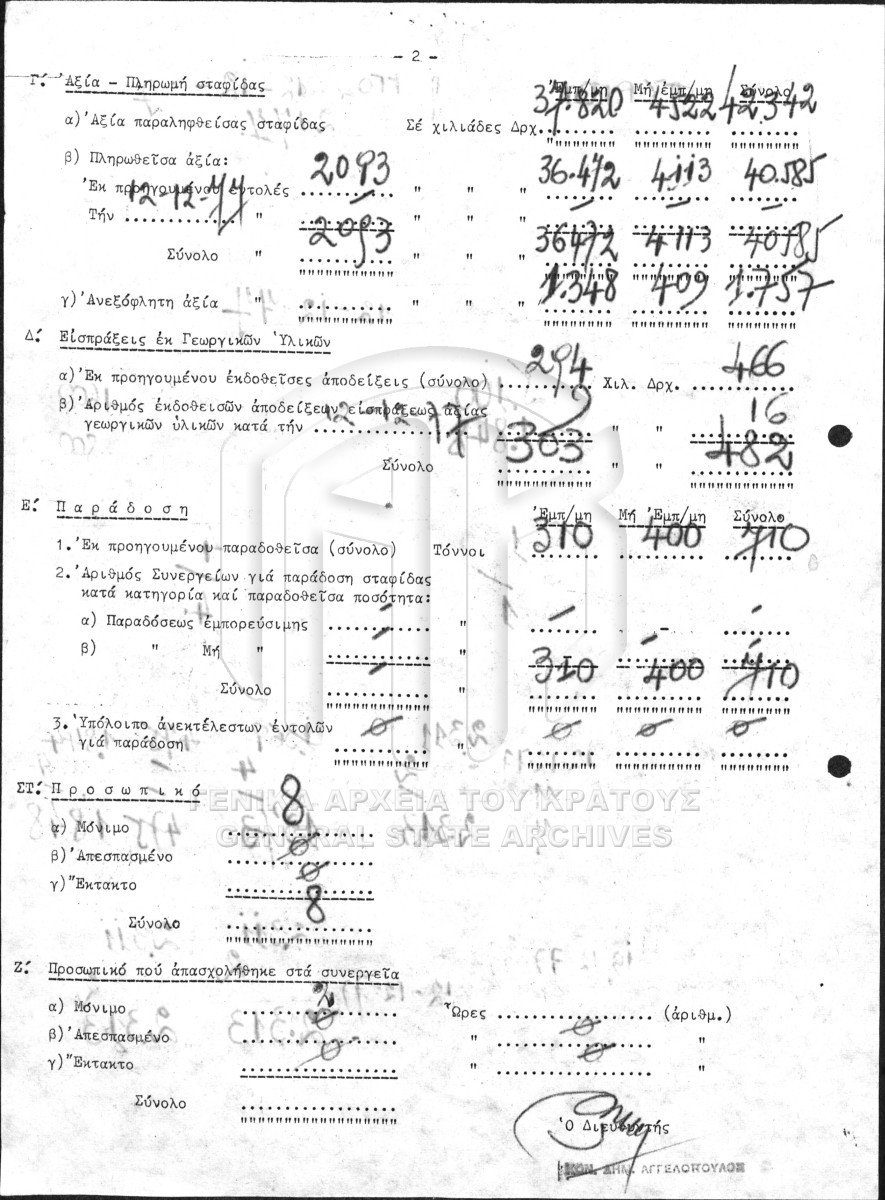 - 2 -
Γ: Ἀξία - Πληρωμή σταφίδας Ἐμπ/μη Μή ἐμπ/μη Σύνολο
α) Ἀξία παραληφθείσας σταφίδας Σέ χιλιάδες Δρχ. 37.820 4522 42.342
β) Πληρωθεῖσα ἀξία:
Ἐκ προηγουμένου ἐντολές 2093 " " " 36.472 4113 40.585
Τήν 12-12-77 " — " " " — — —
Σύνολο " 2093 " " " 36472 4113 40585
γ) Ἀνεξόφλητη ἀξία " " " " 1.348 409 1.757
Δ: Εἰσπράξεις ἐκ Γεωργικῶν Ὑλικῶν
α) Ἐκ προηγουμένου ἐκδοθεῖσες ἀποδείξεις (σύνολο) 294 Χιλ. Δρχ. 466
β) Ἀριθμός ἐκδοθεισῶν ἀποδείξεων εἰσπράξεως ἀξίας
γεωργικῶν ὑλικῶν κατά τήν 12 12 77 9 " " 16
Σύνολο 303 " " 482
Ε: Παράδοση Ἐμπ/μη Μή Ἐμπ/μη Σύνολο
1. Ἐκ προηγουμένου παραδοθεῖσα (σύνολο) Τόννοι 310 400 710
2. Ἀριθμός Συνεργείων γιά παράδοση σταφίδας
κατά κατηγορία καί παραδοθεῖσα ποσότητα:
α) Παραδόσεως ἐμπορεύσιμης — " — — —
β) " Μή " — "
Σύνολο — " 310 400 710
3. Ὑπόλοιπο ἀνεκτέλεστων ἐντολῶν
γιά παράδοση ∅ " ∅ ∅ ∅
ΣΤ: Προσωπικό
α) Μόνιμο 8
β) Ἀπεσπασμένο ∅
γ) Ἔκτακτο ∅
Σύνολο 8
ΓΕΝΙΚΑ ΑΡΧΕΙΑ ΤΟΥ ΚΡΑΤΟΥΣ
GENERAL STATE ARCHIVES
Ζ: Προσωπικό πού ἀπασχολήθηκε στά συνεργεῖα
α) Μόνιμο 2 Ὧρες (ἀριθμ.)
β) Ἀπεσπασμένο ∅ " ∅ "
γ) Ἔκτακτο ∅ " ∅ "
Σύνολο
Ὁ Διευθυντής
ΔΗΜ. ΑΓΓΕΛΟΠΟΥΛΟΣ